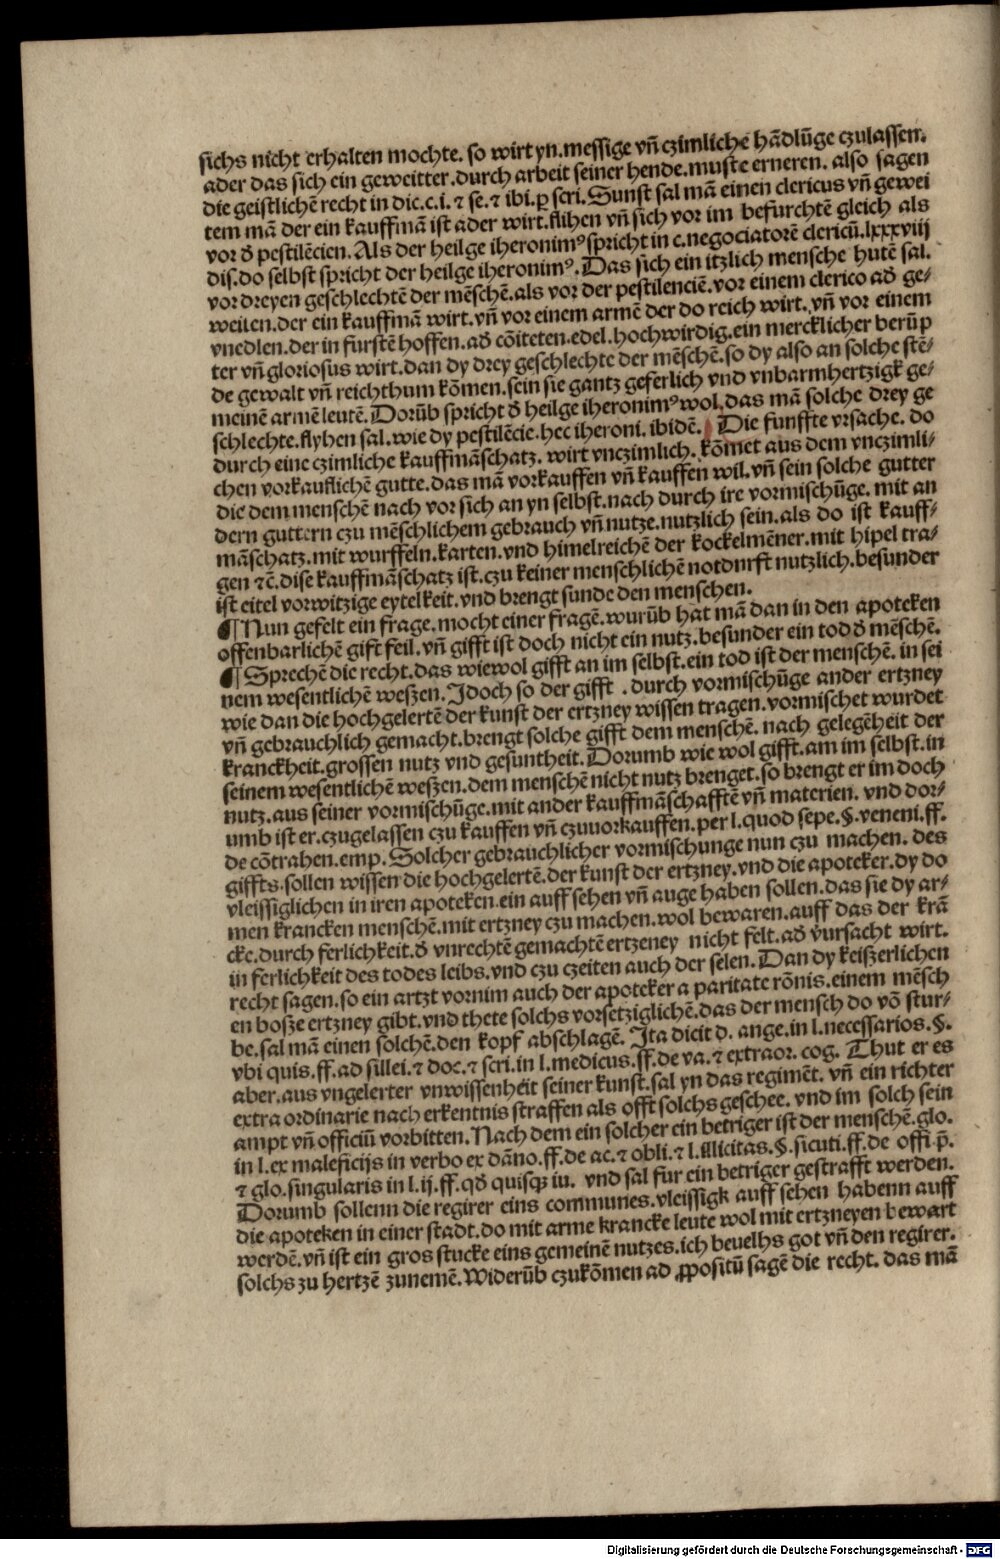 sichs nicht erhalten mochte. so wirt yn. messige vn̄ czimlichē hādlūge czulassen.
ader das sich ein geweitter. durch arbeit seiner hende. muste erneren. also sagen
die geistlichē recht in dic. c. i. ⁊ se. ⁊ ibi. ꝑ scri. Sunst sal mā einen clericus vn̄ gewei
tem mā der ein kauffmā ist ader wirt. flihen vn̄ sich vor im befurchtē gleich als
vor d̄ pestilēcien. Als der heilge iheronimꝰ spricht in c. negociatorē clericū. lxxxviij
dis. do selbst spricht der heilge iheronimꝰ. Das sich ein itzlich mensche hutē sal.
vor dreyen geschlechtē der mēschē. als vor der pestilenciē. vor einem clerico ad̄ ge⸗
weiten. der ein kauffmā wirt. vn̄ vor einem armē der do reich wirt. vn̄ vor einem
vnedlen. der in furstē hoffen. ad̄ cōiteten. edel. hochwirdig. ein mercklicher berūp
ter vn̄ gloriosus wirt. dan dy drey geschlechte der mēschē. so dy also an solche stē⸗
de gewalt vn̄ reichthum kōmen. sein sie gantz geferlich vnd vnbarmhertzigk ge⸗
meinē armē leutē. Dorūb spricht d̄ heilge iheronimꝰ wol. das mā solche drey ge
schlechte. flyhen sal. wie dy pestilēcie. hec iheroni. ibidē. Die funffte vrsache. do
durch eine czimliche kauffmāschatz. wirt vnczimlich. kōmet aus dem vnczimli⸗
chen vorkauflichē gutte. das mā vorkauffen vn̄ kauffen wil. vn̄ sein solche gutter
die dem menschē nach vor sich an yn selbst. nach durch ire vormischūge. mit an
dern guttern czu mēschlichem gebrauch vn̄ nutze. nutzlich sein. als do ist kauff⸗
māschatz. mit wurffeln. karten. vnd himelreichē der kockelmēner. mit hipel tra⸗
gen ⁊ē. dise kauffmāschatz ist. czu keiner menschlichē notdurft nutzlich. besunder
ist eitel vorwitzige eytelkeit. vnd brengt sunde den menschen.
¶ Nun gefelt ein frage. mocht einer fragē. wurūb hat mā dan in den apoteken
offenbarlichē gift feil. vn̄ gifft ist doch nicht ein nutz. besunder ein tod d̄ mēschē.
¶ Sprechē die recht. das wiewol gifft an im selbst. ein tod ist der menschē. in sei
nem wesentlichē weszen. Jdoch so der gifft . durch vormischūge ander ertzney
wie dan die hochgelertē der kunst der ertzney wissen tragen. vormischet wurdet
vn̄ gebrauchlich gemacht. brengt solche gifft dem menschē. nach gelegēheit der
kranckheit. grossen nutz vnd gesuntheit. Dorumb wie wol gifft. am im selbst. in
seinem wesentlichē weszen. dem menschē nicht nutz brenget. so brengt er im doch
nutz. aus seiner vormischūge. mit ander kauffmāschafftē vn̄ materien. vnd dor⸗
umb ist er. czugelassen czu kauffen vn̄ czuuorkauffen. per l. quod sepe. §. veneni. ff.
de cōtrahen. emp. Solcher gebrauchlicher vormischunge nun czu machen. des
giffts. sollen wissen die hochgelertē. der kunst der ertzney. vnd die apoteker. dy do
vleissiglichen in iren apoteken. ein auff sehen vn̄ auge haben sollen. das sie dy ar⸗
men krancken menschē. mit ertzney czu machen. wol bewaren. auff das der krā
cke. durch ferlichkeit. d̄ vnrechtē gemachtē ertzeney nicht felt. ad̄ vursacht wirt.
in ferlichkeit des todes leibs. vnd czu czeiten auch der selen. Dan dy keiszerlichen
recht sagen. so ein artzt vornim auch der apoteker a paritate rōnis. einem mēsch
en bosze ertzney gibt. vnd thete solchs vorsetziglichē. das der mensch do vō stur⸗
be. sal mā einen solchē. den kopf abschlagē. Ita dicit d. ange. in l. necessarios. §.
vbi quis. ff. ad sillei. ⁊ doc. ⁊ scri. in l. medicus. ff. de va. ⁊ extraor. cog. Thut er es
aber. aus vngelerter vnwissenheit seiner kunst. sal yn das regimēt. vn̄ ein richter
extra ordinarie nach erkentnis straffen als offt solchs geschee. vnd im solch sein
ampt vn̄ officiū vorbitten. Nach dem ein solcher ein betriger ist der menschē. glo.
in l. ex maleficijs in verbo ex dāno. ff. de ac. ⁊ obli. ⁊ l. illicitas. §. sicuti. ff. de offi p̄.
⁊ glo. singularis in l. ij. ff. qd̄ quisqꝫ iu. vnd sal fur ein betriger gestrafft werden.
Dorumb sollenn die regirer eins communes. vleissigk auff sehen habenn auff
die apoteken in einer stadt. do mit arme krancke leute wol mit ertzneyen bewart
werdē. vn̄ ist ein gros stucke eins gemeinē nutzes. ich beuelhs got vn̄ den regirer.
solchs zu hertzē zunemē. Widerūb czukōmen ad ꝓpositū sagē die recht. das mā
Digitalisierung gefördert durch die Deutsche Forschungsgemeinschaft - DFG